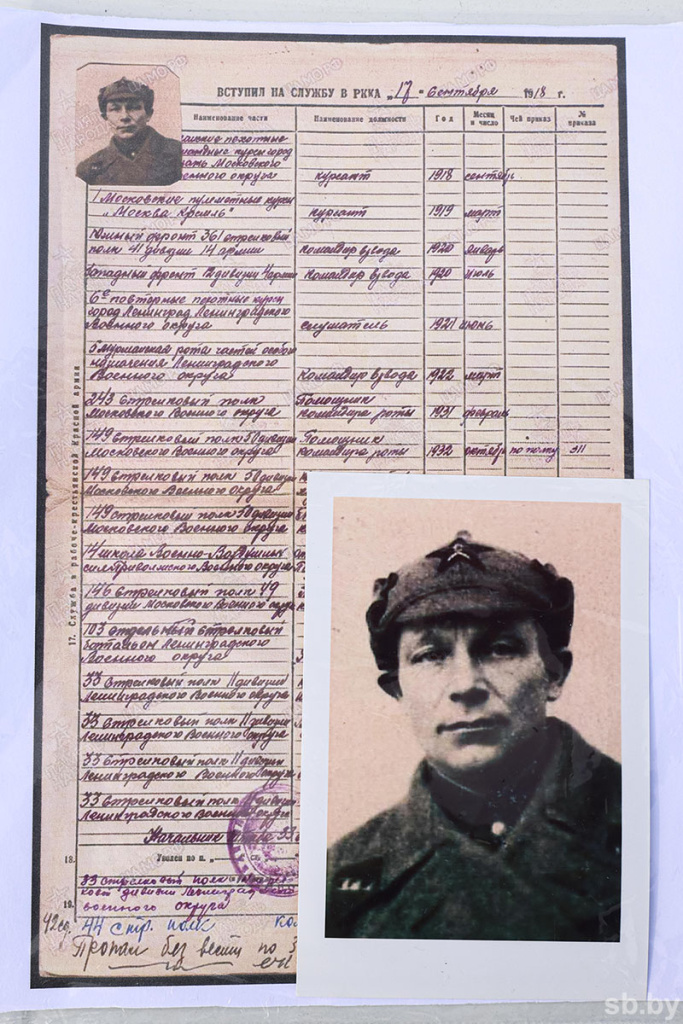 ВСТУПИЛ НА СЛУЖБУ В РККА „17" сентября 1918 г.
Наименование части Наименование должности Год Месяц и число Чей приказ № приказа
пехотные
курсы город
Московского
военного округа курсант 1918 сентябрь
1 Московские пулеметные курсы
„Москва Кремль" курсант 1919 март
Южный фронт 361 стрелковый
полк 41 дивизии 14 армии командир взвода 1920 январь
Западный фронт 12 дивизии 4 армии командир взвода 1920 июль
6е повторные пехотные курсы
город Ленинград Ленинградского
Военного округа слушатель 1921 июнь
5 Мурманская рота частей особого
назначения Ленинградского
Военного округа командир взвода 1922 март
243 стрелковый полк Помощник
Московского Военного округа командира роты 1931 февраль
149 стрелковый полк 50 дивизии Помощник
Московского Военного округа командира роты 1932 октябрь по полку 311
149 стрелковый полк 50 дивизии
Московского Военного округа
149 стрелковый полк 50 дивизии
Московского Военного округа
14 школа Военно-Воздушных
сил Приволжского Военного округа
146 стрелковый полк 49
дивизии Московского Военного округа
103 отдельный стрелковый
батальон Ленинградского
Военного округа
33 стрелковый полк 11 дивизии
Ленинградского Военного округа
33 стрелковый полк 11 дивизии
Ленинградского Военного округа
33 стрелковый полк 11 дивизии
Ленинградского Военного округа
33 стрелковый полк 11 дивизии
Ленинградского Военного округа
Начальник штаба 33
18. Уволен по п. „
33 стрелковый полк
дивизии Ленинградского
19. военного округа
42 сд. 44 стр. полк
Пропал без вести по
17. Служба в рабоче-крестьянской Красной армии
ЦАМО РФ
sb.by